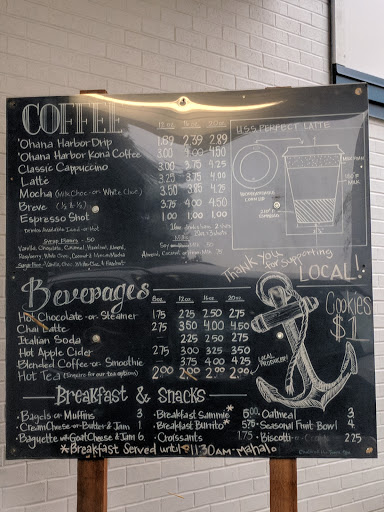 COFFEE
12 oz. 16 oz. 20 oz.
'Ohana Harbor Drip 1.89 2.39 2.89
'Ohana Harbor Kona Coffee 3.00 4.00 4.50
Classic Cappuccino 3.00 3.75 4.25
Latte 3.25 3.75 4.00
Mocha (Milk Choc -or- White Choc) 3.50 3.85 4.25
Breve (½ & ½) 3.75 4.00 4.50
Espresso Shot 1.00 1.00 1.00
Drinks Available Iced -or- Hot
Syrup Flavors - .50
Vanilla, Chocolate, Caramel, Hazelnut, Almond,
Raspberry, White Choc, Coconut & Macadamia
U.S.S. PERFECT LATTE
Thank You
for Supporting
LOCAL!
Beverages
8oz. 12oz. 16oz. 20oz.
Hot Chocolate -or- Steamer 1.75 2.25 2.50 2.75
Chai Latte 2.75 3.50 4.00 4.50
Italian Soda 2.25 2.50 2.75
Hot Apple Cider 2.75 3.00 3.25 3.50
Blended Coffee -or- Smoothie 3.75 4.00 4.25
Hot Tea (Inquire for tea options) 2.00 2.00 2.00 2.00
LOCAL
PROUDLY
COOKIES
$1
Breakfast & Snacks
• Bagels or Muffins 3
• Cream Cheese -or- Butter & Jam 1
• Baguette w/ Goat Cheese & Jam 6
• Breakfast Sammie* 5.00
• Breakfast Burrito* 5.75
• Croissants 1.75
• Oatmeal 3
• Seasonal Fruit Bowl 4
• Biscotti -or- 2.25
*Breakfast Served until 11:30AM - Mahalo